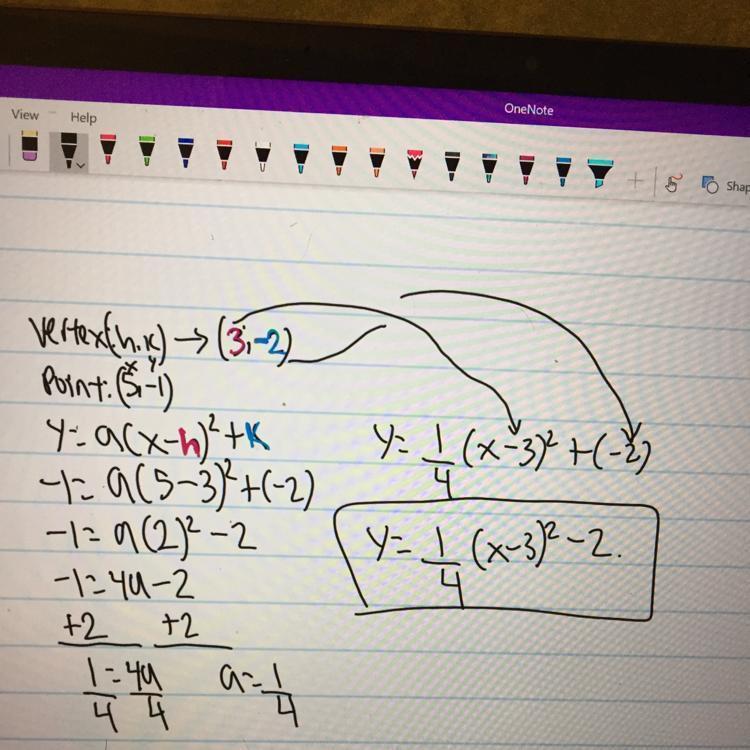 OneNote
View Help
Shap
Vertex(h,k) → (3,-2)
x y
Point: (5,-1)
y = a(x-h)² + k
-1 = a(5-3)² + (-2)
-1 = a(2)² - 2
-1 = 4a - 2
+2 +2
1 = 4a
4 4
a = 1/4
y = 1/4 (x-3)² + (-2)
y = 1/4 (x-3)² - 2.